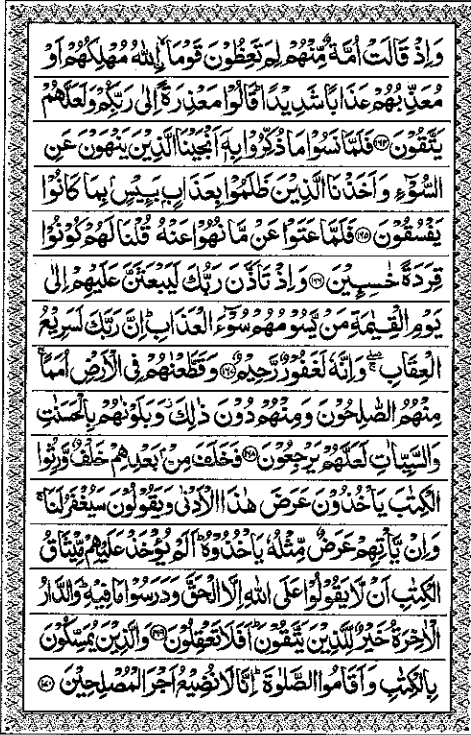 وَاِذْ قَالَتْ اُمَّةٌ مِّنْهُمْ لِمَ تَعِظُوْنَ قَوْمَاۨ ۙاللّٰهُ مُهْلِكُهُمْ اَوْ
مُعَذِّبُهُمْ عَذَابًا شَدِيْدًا ؕ قَالُوْا مَعْذِرَةً اِلٰى رَبِّكُمْ وَلَعَلَّهُمْ
يَتَّقُوْنَ ﴿۱۶۴﴾ فَلَمَّا نَسُوْا مَا ذُكِّرُوْا بِهٖۤ اَنْجَيْنَا الَّذِيْنَ يَنْهَوْنَ عَنِ
السُّوْٓءِ وَاَخَذْنَا الَّذِيْنَ ظَلَمُوْا بِعَذَابٍۭ بَـِٕيْسٍۭ بِمَا كَانُوْا
يَفْسُقُوْنَ ﴿۱۶۵﴾ فَلَمَّا عَتَوْا عَنْ مَّا نُهُوْا عَنْهُ قُلْنَا لَهُمْ كُوْنُوْا
قِرَدَةً خٰسِـِٕيْنَ ﴿۱۶۶﴾ وَاِذْ تَاَذَّنَ رَبُّكَ لَيَبْعَثَنَّ عَلَيْهِمْ اِلٰى
يَوْمِ الْقِيٰمَةِ مَنْ يَّسُوْمُهُمْ سُوْٓءَ الْعَذَابِ ؕ اِنَّ رَبَّكَ لَسَرِيْعُ
الْعِقَابِ ۖۚ وَاِنَّهٗ لَغَفُوْرٌ رَّحِيْمٌ ﴿۱۶۷﴾ وَقَطَّعْنٰهُمْ فِى الْاَرْضِ اُمَمًا ۚ
مِنْهُمُ الصّٰلِحُوْنَ وَمِنْهُمْ دُوْنَ ذٰلِكَ ۫ وَبَلَوْنٰهُمْ بِالْحَسَنٰتِ
وَالسَّيِّاٰتِ لَعَلَّهُمْ يَرْجِعُوْنَ ﴿۱۶۸﴾ فَخَلَفَ مِنْۢ بَعْدِهِمْ خَلْفٌ وَّرِثُوا
الْكِتٰبَ يَاْخُذُوْنَ عَرَضَ هٰذَا الْاَدْنٰى وَيَقُوْلُوْنَ سَيُغْفَرُ لَنَا ۚ
وَاِنْ يَّاْتِهِمْ عَرَضٌ مِّثْلُهٗ يَاْخُذُوْهُ ؕ اَلَمْ يُؤْخَذْ عَلَيْهِمْ مِّيْثَاقُ
الْكِتٰبِ اَنْ لَّا يَقُوْلُوْا عَلَى اللّٰهِ اِلَّا الْحَقَّ وَدَرَسُوْا مَا فِيْهِ ؕ وَالدَّارُ
الْاٰخِرَةُ خَيْرٌ لِّلَّذِيْنَ يَتَّقُوْنَ ؕ اَفَلَا تَعْقِلُوْنَ ﴿۱۶۹﴾ وَالَّذِيْنَ يُمَسِّكُوْنَ
بِالْكِتٰبِ وَاَقَامُوا الصَّلٰوةَ ؕ اِنَّا لَا نُضِيْعُ اَجْرَ الْمُصْلِحِيْنَ ﴿۱۷۰﴾